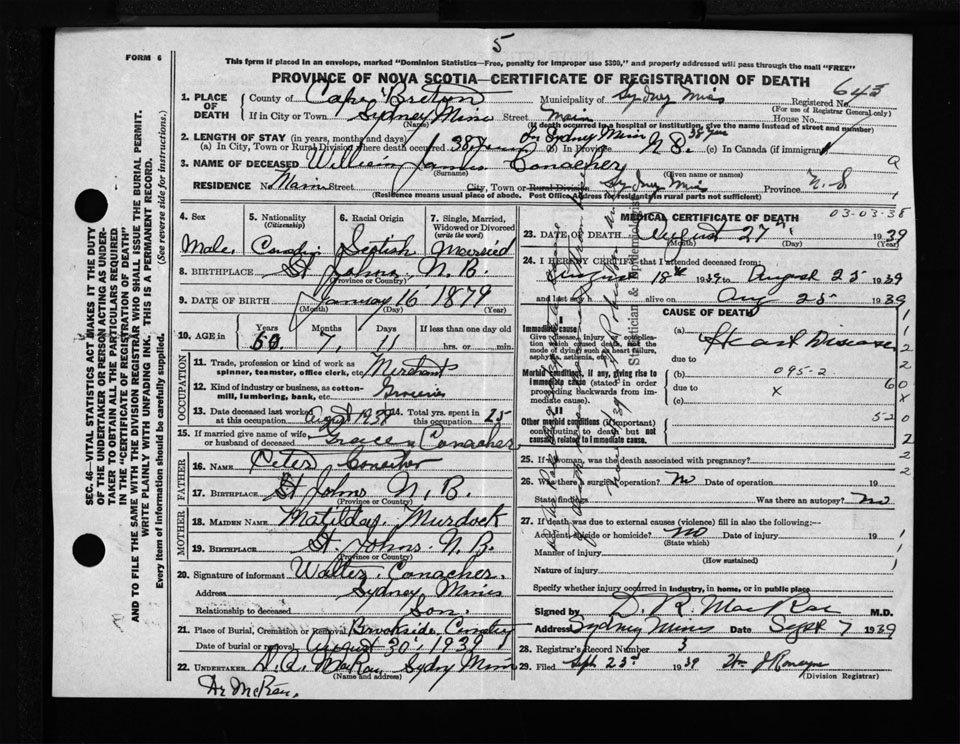 5
FORM 6
This form if placed in an envelope, marked "Dominion Statistics—Free, penalty for improper use $300," and properly addressed will pass through the mail "FREE"
PROVINCE OF NOVA SCOTIA—CERTIFICATE OF REGISTRATION OF DEATH
SEC. 46—VITAL STATISTICS ACT MAKES IT THE DUTY
OF THE UNDERTAKER OR PERSON ACTING AS UNDER-
TAKER TO OBTAIN ALL THE PARTICULARS REQUIRED
IN THE "CERTIFICATE OF REGISTRATION OF DEATH"
AND TO FILE THE SAME WITH THE DIVISION REGISTRAR WHO SHALL ISSUE THE BURIAL PERMIT.
WRITE PLAINLY WITH UNFADING INK. THIS IS A PERMANENT RECORD.
Every item of information should be carefully supplied. (See reverse side for instructions.)
1. PLACE OF DEATH
County of Cape Breton Municipality of Sydney Mines Registered No. 643
(For use of Registrar General only)
If in City or Town Sydney Mines Street Main House No.
(Name) (If death occurred in a hospital or institution, give the name instead of street and number)
2. LENGTH OF STAY (in years, months and days)
(a) In City, Town or Rural Division where death occurred 38 Years (b) In Province N.S. 38 years (c) In Canada (if immigrant)
3. NAME OF DECEASED William James Conacher
(Surname) (Given name or names)
RESIDENCE No. Main Street City, Town or Rural Division Sydney Mines Province N.S.
(Residence means usual place of abode. Post Office Address for residents in rural parts not sufficient)
4. Sex Male
5. Nationality (Citizenship)
6. Racial Origin Scotish
7. Single, Married, Widowed or Divorced (write the word) Married
8. BIRTHPLACE St Johns, N.B.
(Province or Country)
9. DATE OF BIRTH January 16 1879
(Month) (Day) (Year)
10. AGE in Years 60 Months 7 Days 11 If less than one day old hrs. or min.
OCCUPATION
11. Trade, profession or kind of work as spinner, teamster, office clerk, etc. Merchant
12. Kind of industry or business, as cotton-mill, lumbering, bank, etc. Groceries
13. Date deceased last worked at this occupation August 1939 14. Total yrs. spent in this occupation 25
15. If married give name of wife or husband of deceased Conacher
FATHER
16. NAME Peter Conacher
17. BIRTHPLACE St Johns N.B.
(Province or Country)
MOTHER
18. MAIDEN NAME Matilda Murdock
19. BIRTHPLACE St. Johns. N.B.
(Province or Country)
20. Signature of informant Walter Conacher.
Address Sydney Mines
Relationship to deceased Son.
21. Place of Burial, Cremation or Removal Brookside Cemetery
Date of burial or removal August 30, 1939
22. UNDERTAKER MacKay Sydney Mines
(Name and address)
Dr McRae.
MEDICAL CERTIFICATE OF DEATH
03-03-38
23. DATE OF DEATH August 27th 1939
(Month) (Day) (Year)
24. I HEREBY CERTIFY that I attended deceased from:
August 18th 1939 to August 25 1939
and last saw h alive on Aug 25 1939
CAUSE OF DEATH
I
Immediate cause
Give disease, injury or complication which caused death, not the mode of dying; such as heart failure, asphyxia, asthenia, etc.
(a) Heart Disease
due to
Morbid conditions, if any, giving rise to immediate cause (stated in order proceeding backwards from immediate cause).
(b) 095-2
due to X
(c)
II
Other morbid conditions (if important) contributing to death but not causally related to immediate cause.
52
25. If a woman, was the death associated with pregnancy?
26. Was there a surgical operation? No Date of operation 19
State findings Was there an autopsy? No
27. If death was due to external causes (violence) fill in also the following:—
Accident, suicide or homicide? No Date of injury 19
(State which)
Manner of injury
(How sustained)
Nature of injury
Specify whether injury occurred in industry, in home, or in public place
Signed by D. R. MacRae M.D.
Address Sydney Mines Date Sept 7 1939
28. Registrar's Record Number 5
29. Filed Sept 23rd 1939 Wm J
(Division Registrar)